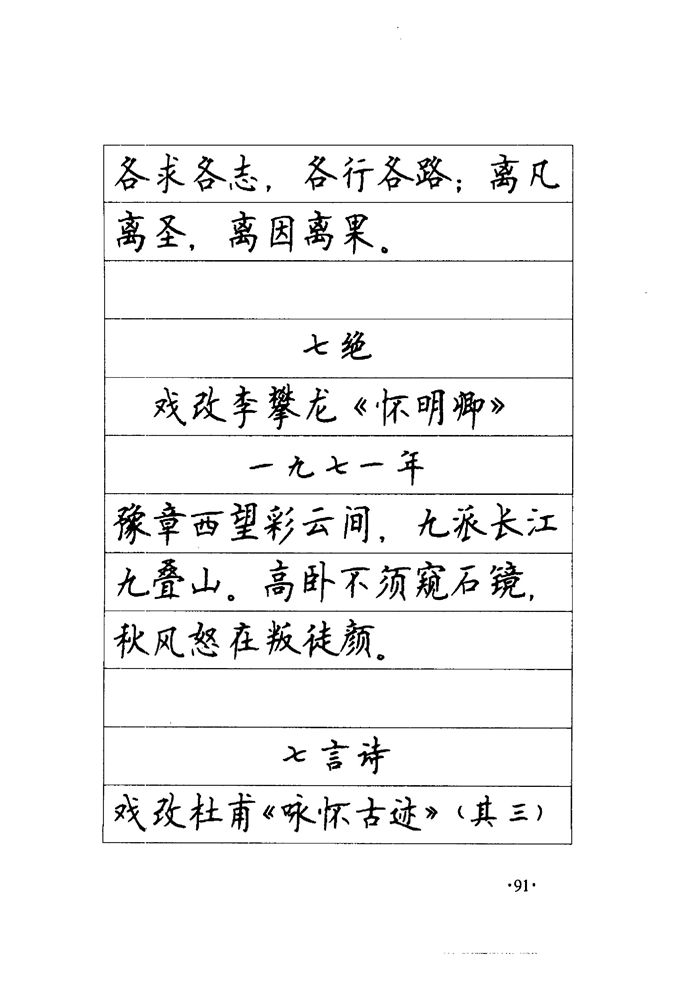 各求各志，各行各路；离凡
离圣，离因离果。
七绝
戏改李攀龙《怀明卿》
一九七一年
豫章西望彩云间，九派长江
九叠山。高卧不须窥石镜，
秋风怒在叛徒颜。
七言诗
戏改杜甫《咏怀古迹》（其三）
·91·